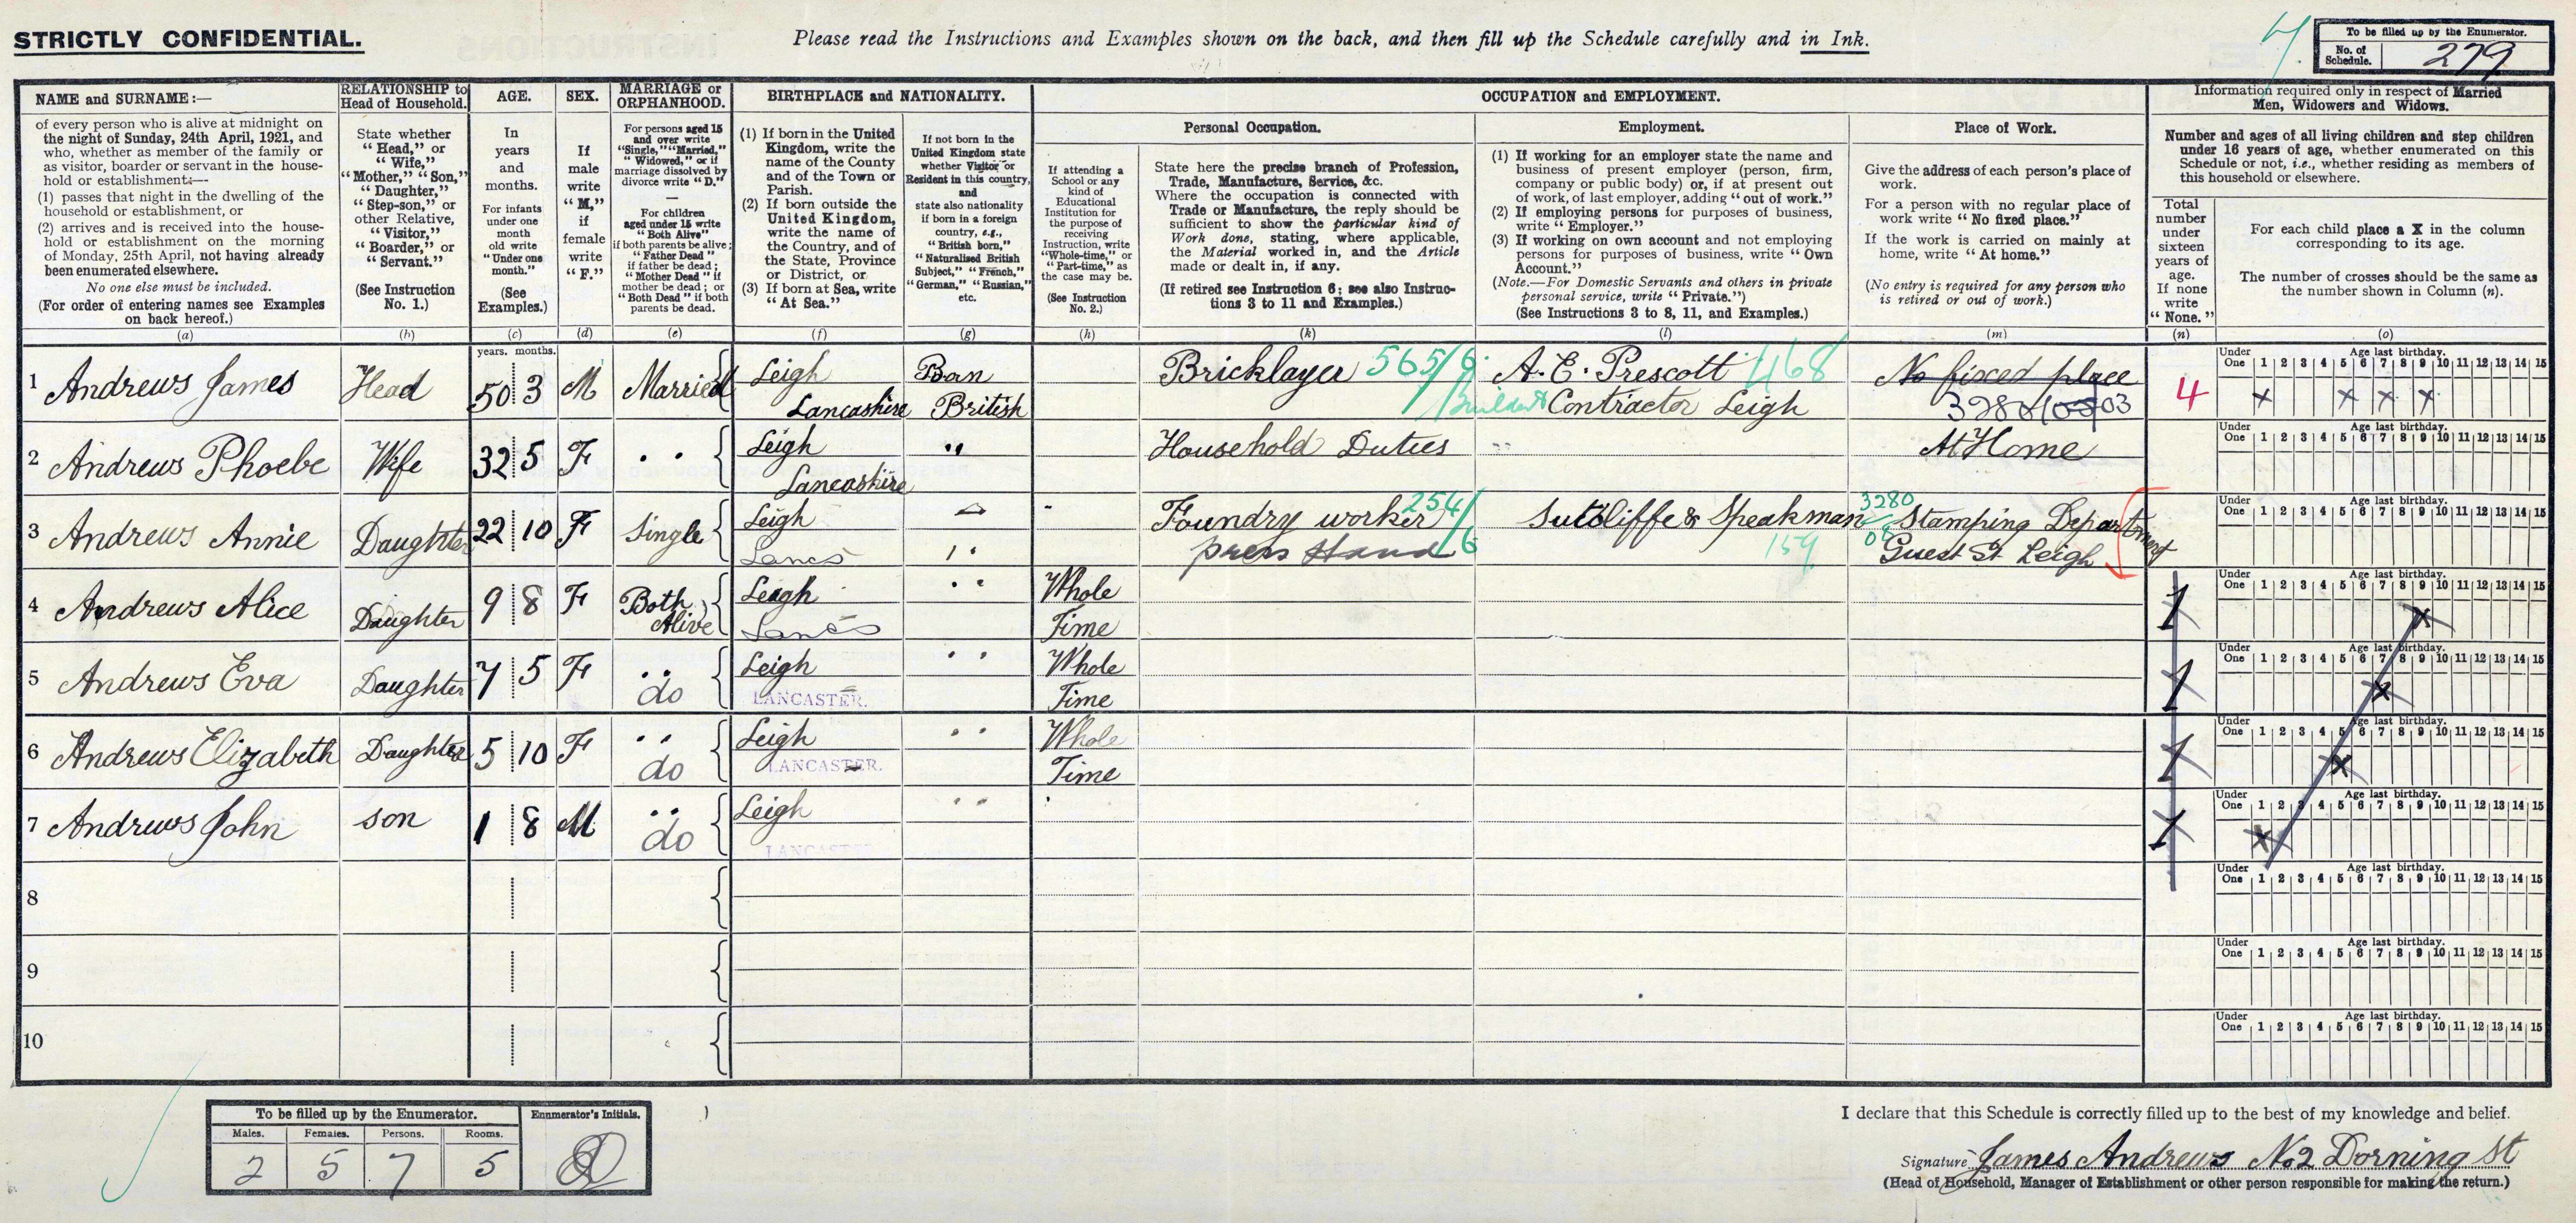 STRICTLY CONFIDENTIAL.
Please read the Instructions and Examples shown on the back, and then fill up the Schedule carefully and in Ink.
To be filled up by the Enumerator.
No. of Schedule. 279
NAME and SURNAME:—
of every person who is alive at midnight on
the night of Sunday, 24th April, 1921, and
who, whether as member of the family or
as visitor, boarder or servant in the house-
hold or establishment:—
(1) passes that night in the dwelling of the
household or establishment, or
(2) arrives and is received into the house-
hold or establishment on the morning
of Monday, 25th April, not having already
been enumerated elsewhere.
No one else must be included.
(For order of entering names see Examples
on back hereof.)
(a)
RELATIONSHIP to
Head of Household.
State whether
"Head," or
"Wife,"
"Mother," "Son,"
"Daughter,"
"Step-son," or
other Relative,
"Visitor,"
"Boarder," or
"Servant."
(See Instruction
No. 1.)
(b)
AGE.
In
years
and
months.
For infants
under one
month
old write
"Under one
month."
(See
Examples.)
(c)
SEX.
If
male
write
"M,"
if
female
write
"F."
(d)
MARRIAGE or
ORPHANHOOD.
For persons aged 15
and over write
"Single," "Married,"
"Widowed," or if
marriage dissolved by
divorce write "D."
For children
aged under 15 write
"Both Alive"
if both parents be alive;
"Father Dead"
if father be dead;
"Mother Dead" if
mother be dead; or
"Both Dead" if both
parents be dead.
(e)
BIRTHPLACE and NATIONALITY.
(1) If born in the United
Kingdom, write the
name of the County
and of the Town or
Parish.
(2) If born outside the
United Kingdom,
write the name of
the Country, and of
the State, Province
or District, or
(3) If born at Sea, write
"At Sea."
(f)
If not born in the
United Kingdom state
whether Visitor or
Resident in this country,
and
state also nationality
if born in a foreign
country, e.g.,
"British born,"
"Naturalised British
Subject," "French,"
"German," "Russian,"
etc.
(g)
OCCUPATION and EMPLOYMENT.
If attending a
School or any
kind of
Educational
Institution for
the purpose of
receiving
Instruction, write
"Whole-time," or
"Part-time," as
the case may be.
(See Instruction
No. 2.)
(h)
Personal Occupation.
State here the precise branch of Profession,
Trade, Manufacture, Service, &c.
Where the occupation is connected with
Trade or Manufacture, the reply should be
sufficient to show the particular kind of
Work done, stating, where applicable,
the Material worked in, and the Article
made or dealt in, if any.
(If retired see Instruction 6; see also Instruc-
tions 3 to 11 and Examples.)
(k)
Employment.
(1) If working for an employer state the name and
business of present employer (person, firm,
company or public body) or, if at present out
of work, of last employer, adding "out of work."
(2) If employing persons for purposes of business,
write "Employer."
(3) If working on own account and not employing
persons for purposes of business, write "Own
Account."
(Note.—For Domestic Servants and others in private
personal service, write "Private.")
(See Instructions 3 to 8, 11, and Examples.)
(l)
Place of Work.
Give the address of each person's place of
work.
For a person with no regular place of
work write "No fixed place."
If the work is carried on mainly at
home, write "At home."
(No entry is required for any person who
is retired or out of work.)
(m)
Information required only in respect of Married
Men, Widowers and Widows.
Number and ages of all living children and step children
under 16 years of age, whether enumerated on this
Schedule or not, i.e., whether residing as members of
this household or elsewhere.
Total
number
under
sixteen
years of
age.
If none
write
"None."
(n)
For each child place a X in the column
corresponding to its age.
The number of crosses should be the same as
the number shown in Column (n).
(o)
years. months.
Under One 1 2 3 4 5 6 7 8 9 10 11 12 13 14 15
Age last birthday.
1 Andrews James Head 50 3 M Married Leigh Born Bricklayer 565/6 A. E. Prescott 468 No fixed place 4 x x x x
Lancashire British Builder & Contractor Leigh
Under One 1 2 3 4 5 6 7 8 9 10 11 12 13 14 15
Age last birthday.
2 Andrews Phoebe Wife 32 5 F " Leigh " Household Duties At Home
Lancashire
Under One 1 2 3 4 5 6 7 8 9 10 11 12 13 14 15
Age last birthday.
3 Andrews Annie Daughter 22 10 F Single Leigh Foundry worker 254/6 Sutcliffe & Speakman 3280 Stamping Department
Lancs " press Hand 159 Guest St Leigh
Under One 1 2 3 4 5 6 7 8 9 10 11 12 13 14 15
Age last birthday.
4 Andrews Alice Daughter 9 8 F Both Alive Leigh " Whole 1 x
Lancs Time
Under One 1 2 3 4 5 6 7 8 9 10 11 12 13 14 15
Age last birthday.
5 Andrews Eva Daughter 7 5 F " do Leigh " Whole 1 x
LANCASTER. Time
Under One 1 2 3 4 5 6 7 8 9 10 11 12 13 14 15
Age last birthday.
6 Andrews Elizabeth Daughter 5 10 F " do Leigh " Whole 1 x
LANCASTER. Time
Under One 1 2 3 4 5 6 7 8 9 10 11 12 13 14 15
Age last birthday.
7 Andrews John son 1 8 M " do Leigh " 1 x
LANCASTER
Under One 1 2 3 4 5 6 7 8 9 10 11 12 13 14 15
Age last birthday.
8
Under One 1 2 3 4 5 6 7 8 9 10 11 12 13 14 15
Age last birthday.
9
Under One 1 2 3 4 5 6 7 8 9 10 11 12 13 14 15
Age last birthday.
10
To be filled up by the Enumerator.
Males. Females. Persons. Rooms.
2 5 7 5
Enumerator's Initials.
I declare that this Schedule is correctly filled up to the best of my knowledge and belief.
Signature James Andrews No 2 Dorning St
(Head of Household, Manager of Establishment or other person responsible for making the return.)